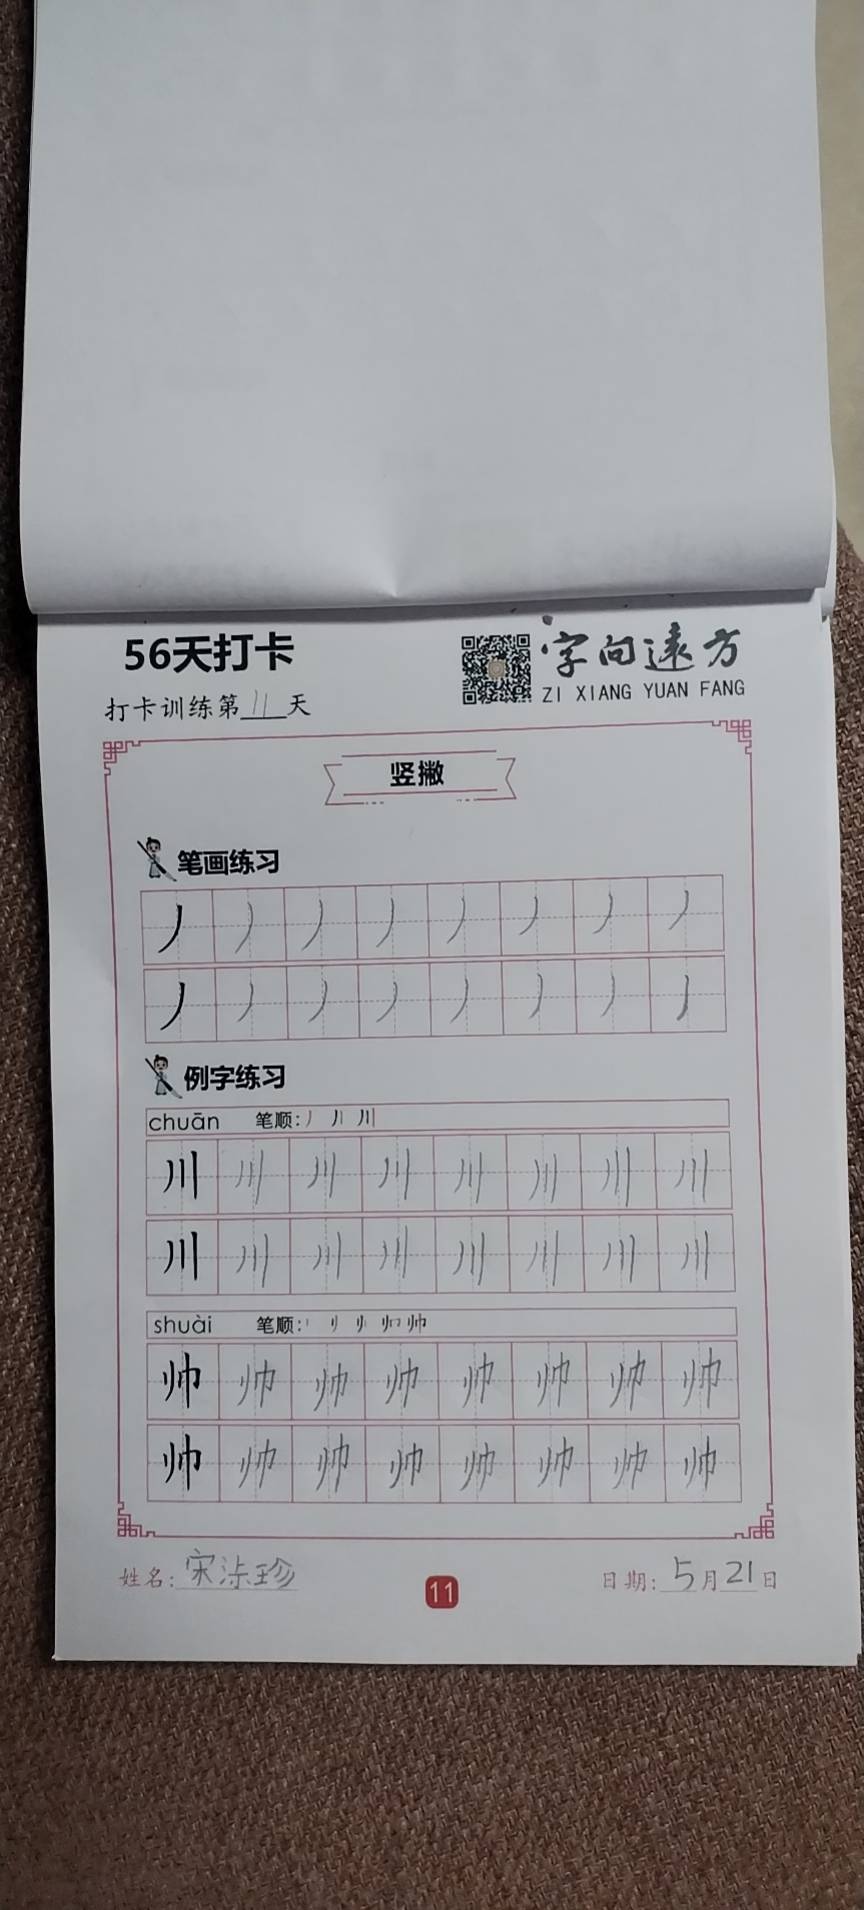 56天打卡
字向远方
ZI XIANG YUAN FANG
打卡训练第11天
竖撇
笔画练习
丿丿丿丿丿丿丿丿
丿丿丿丿丿丿丿丿
例字练习
chuān 笔顺:丿 丿丨 川
川川川川川川川川
川川川川川川川川
shuài 笔顺:
帅帅帅帅帅帅帅帅
帅帅帅帅帅帅帅帅
姓名:宋 珍
11
日期:5月21日